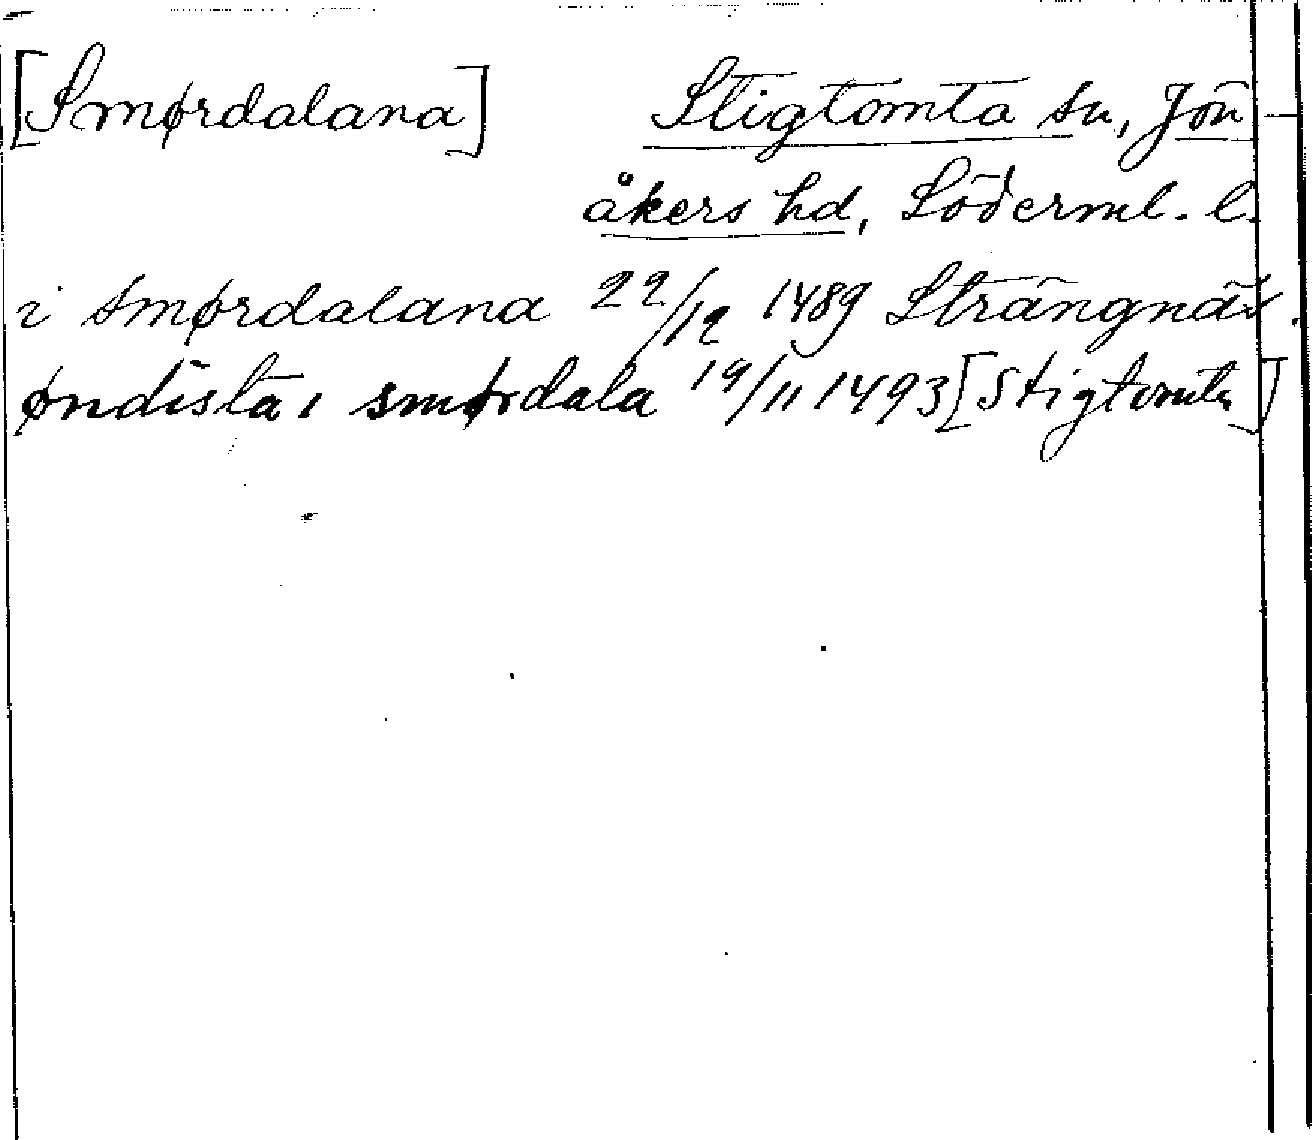 [Smørdalana] Stigtomta sn, Jön-
åkers hd, Söderml. l.
i smørdalana 22/12 1489 Strängnäs.
øndista i smørdala 19/11 1493 [Stigtomta]